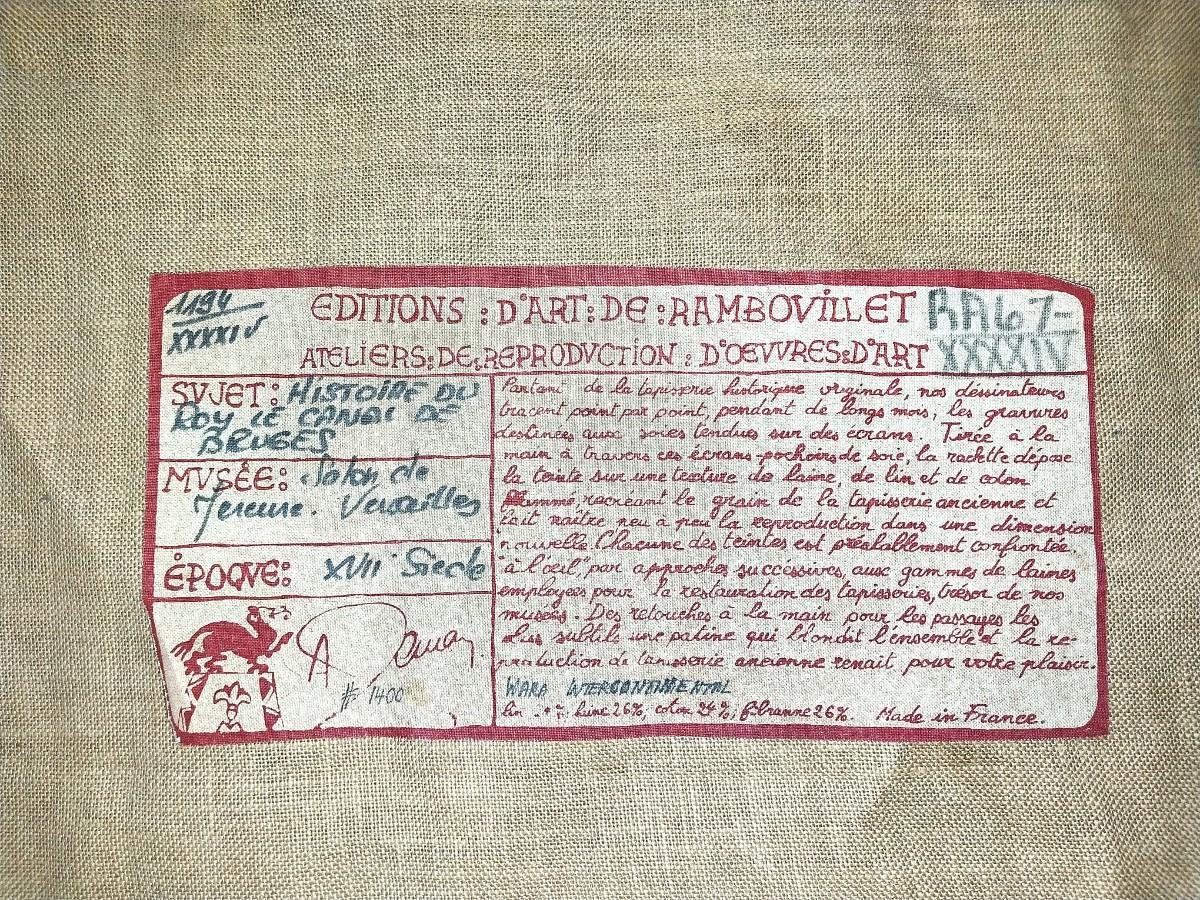 1194
XXXXIV
EDITIONS : D'ART : DE : RAMBOVILLET
RA67-
XXXXIV
ATELIERS : DE : REPRODVCTION : D'OEVVRES : D'ART
SVJET : HISTOIRE DU
ROY LE CANAL DE
BRUGES
MVSÉE : Salon de
Versailles
ÉPOQVE : XVII Siecle
# 1400
Partant de la tapisserie historique originale, nos dessinateurs
tracent point par point, pendant de longs mois, les gravures
destinées aux soies tendues sur des écrans. Tirée à la
main à travers ces écrans-pochoirs de soie, la raclette dépose
la teinte sur une texture de laine, de lin et de coton
flammé, racréant le grain de la tapisserie ancienne et
fait naître peu à peu la reproduction dans une dimension
nouvelle. Chacune des teintes est préalablement confrontée,
à l'oeil, par approches successives, aux gammes de laines
employées pour la restauration des tapisseries, trésor de nos
musées. Des retouches à la main pour les passages les
plus subtils une patine qui blondit l'ensemble et la re-
production de tapisserie ancienne renait pour votre plaisir.
WARA INTERCONTINENTAL
lin laine 26%, coton 24%, fibranne 26%. Made in France.